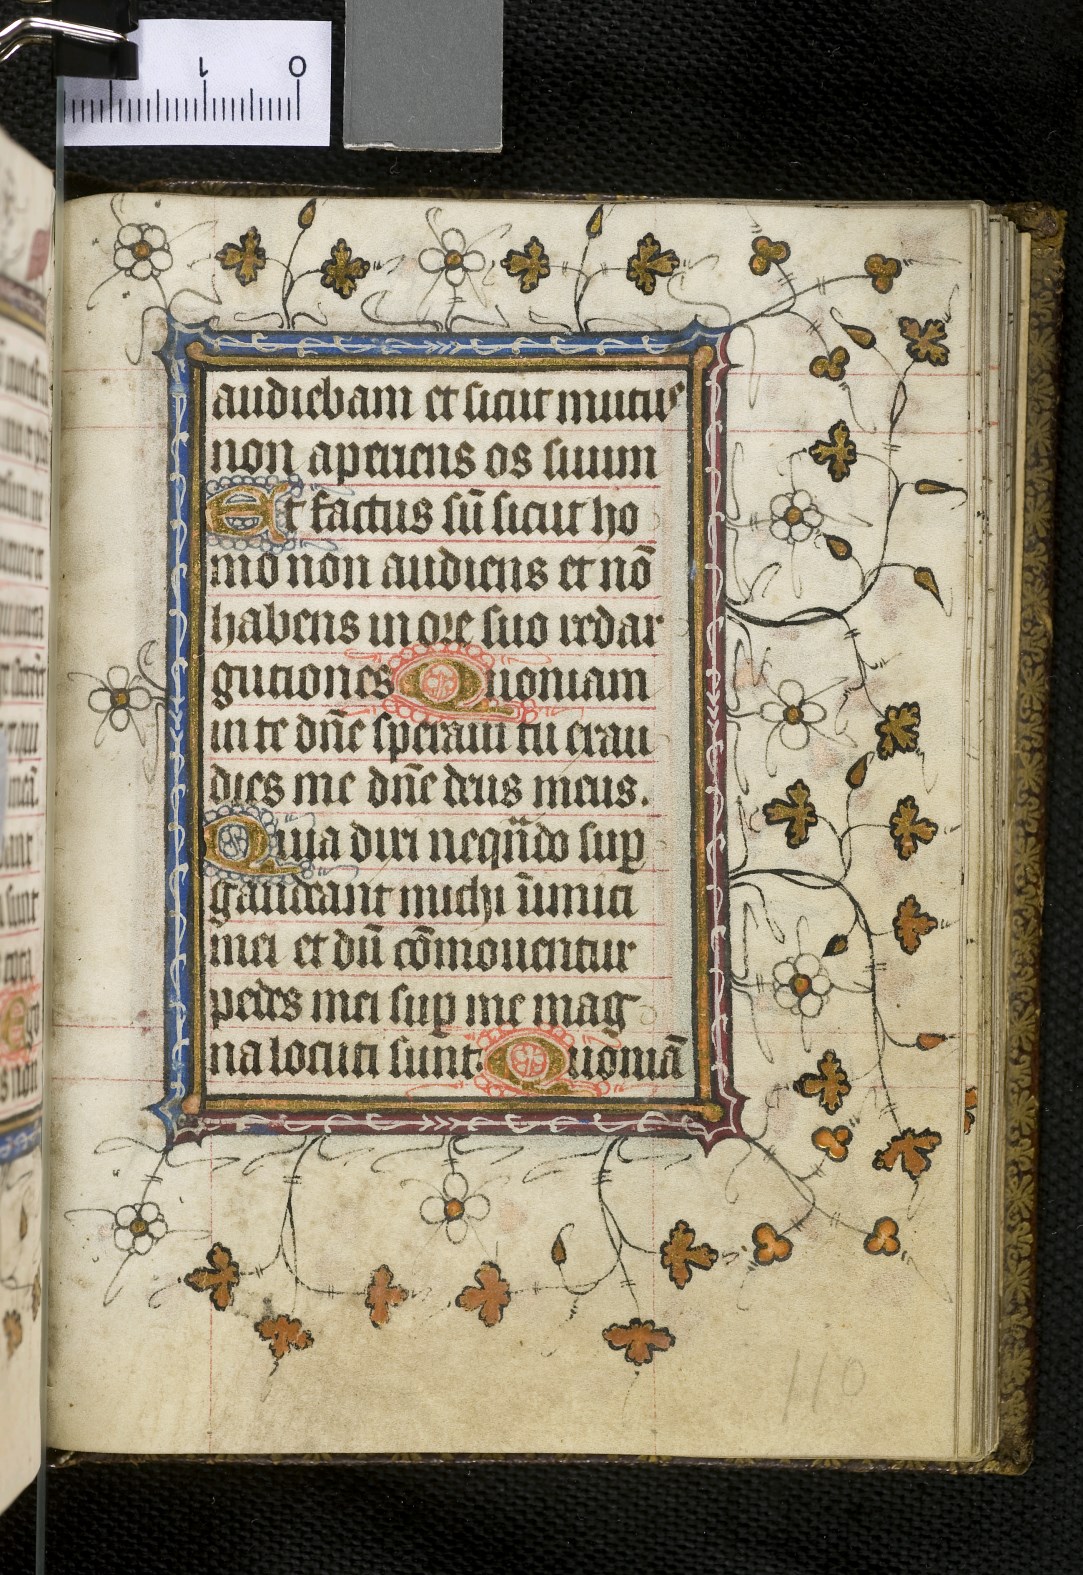 0 1
audiebam et sicut mutus
non aperiens os suum
Et factus sū sicut ho
mo non audiens et nō
habens in ore suo redar
gutiones Quoniam
in te dn̄e speraui tu exau
dies me dn̄e deus meus.
Quia dixi nequn̄do sup̱
gaudeant michi īimici
mei et dū cōmouentur
pedes mei sup̱ me mag
na locuti sunt. Quoniā
110